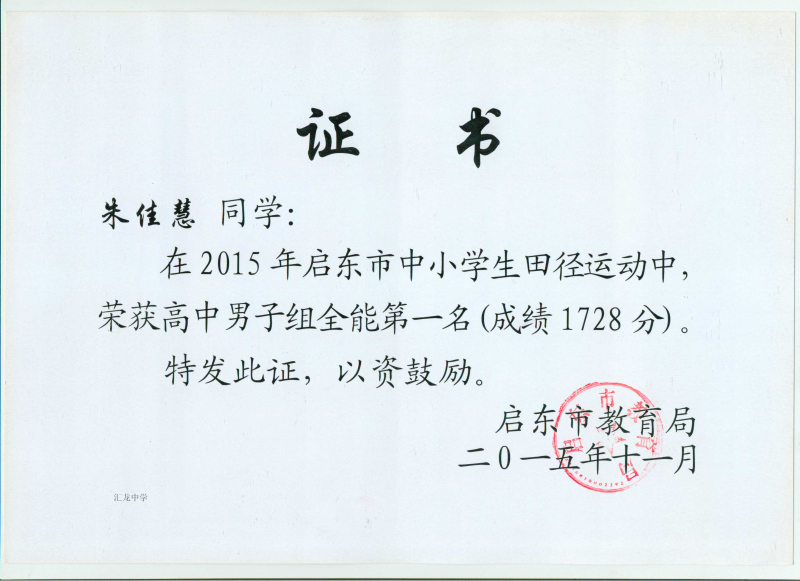 证 书
朱佳慧 同学:
在2015年启东市中小学生田径运动中,
荣获高中男子组全能第一名(成绩1728分)。
特发此证, 以资鼓励。
启东市教育局
二0一五年十一月
启东市教育局
汇龙中学